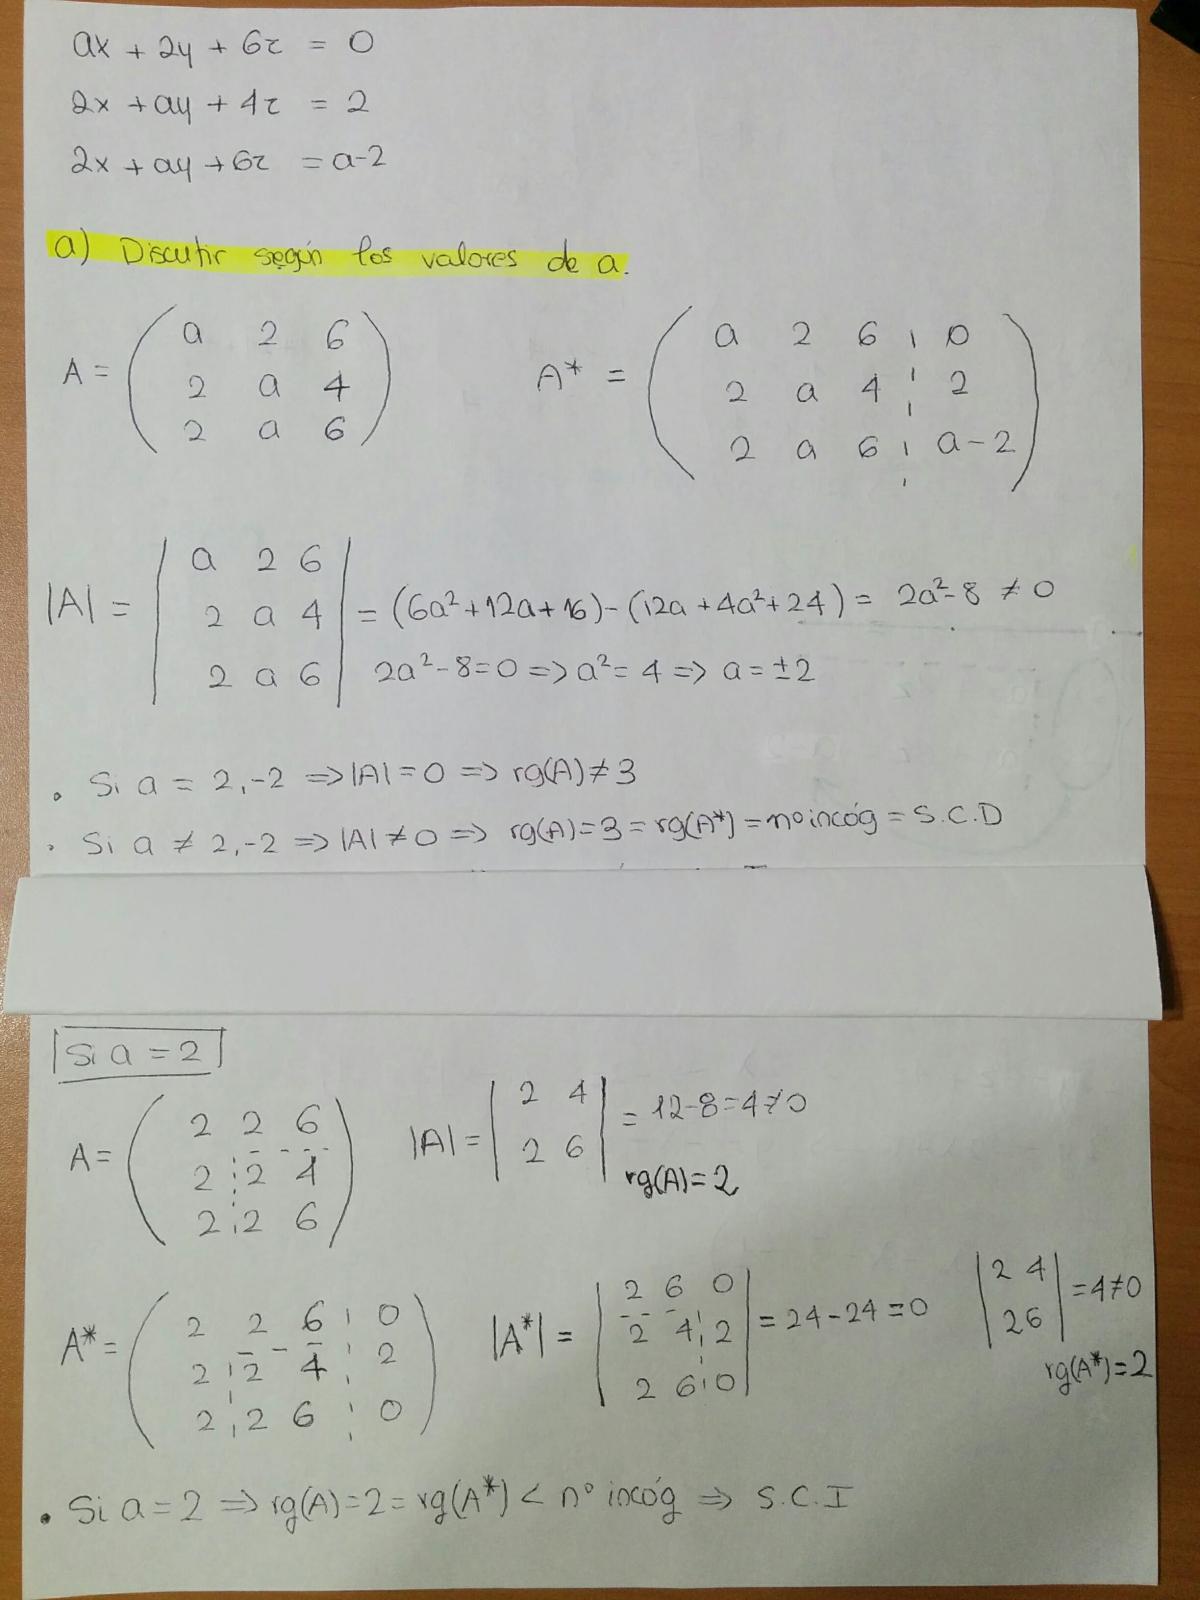 ax + 2y + 6z = 0
2x + ay + 4z = 2
2x + ay + 6z = a-2
a) Discutir según los valores de a.
A = ( a 2 6
2 a 4
2 a 6 )
A* = ( a 2 6 ¦ 0
2 a 4 ¦ 2
2 a 6 ¦ a-2 )
|A| = | a 2 6
2 a 4
2 a 6 | = (6a²+12a+16)-(12a+4a²+24) = 2a²-8 ≠ 0
2a²-8=0 => a²=4 => a=±2
• Si a = 2,-2 => |A|=0 => rg(A)≠3
• Si a ≠ 2,-2 => |A|≠0 => rg(A)=3=rg(A*)=nº incóg = S.C.D
Si a = 2
A= ( 2 2 6
2 2 4
2 2 6 )
|A| = | 2 4
2 6 | = 12-8=4≠0
rg(A)=2
A*= ( 2 2 6 ¦ 0
2 2 4 ¦ 2
2 2 6 ¦ 0 )
|A*| = | 2 6 0
2 4 2
2 6 0 | = 24-24=0
| 2 4
2 6 | =4≠0
rg(A*)=2
• Si a = 2 => rg(A)=2=rg(A*) < nº incóg => S.C.I